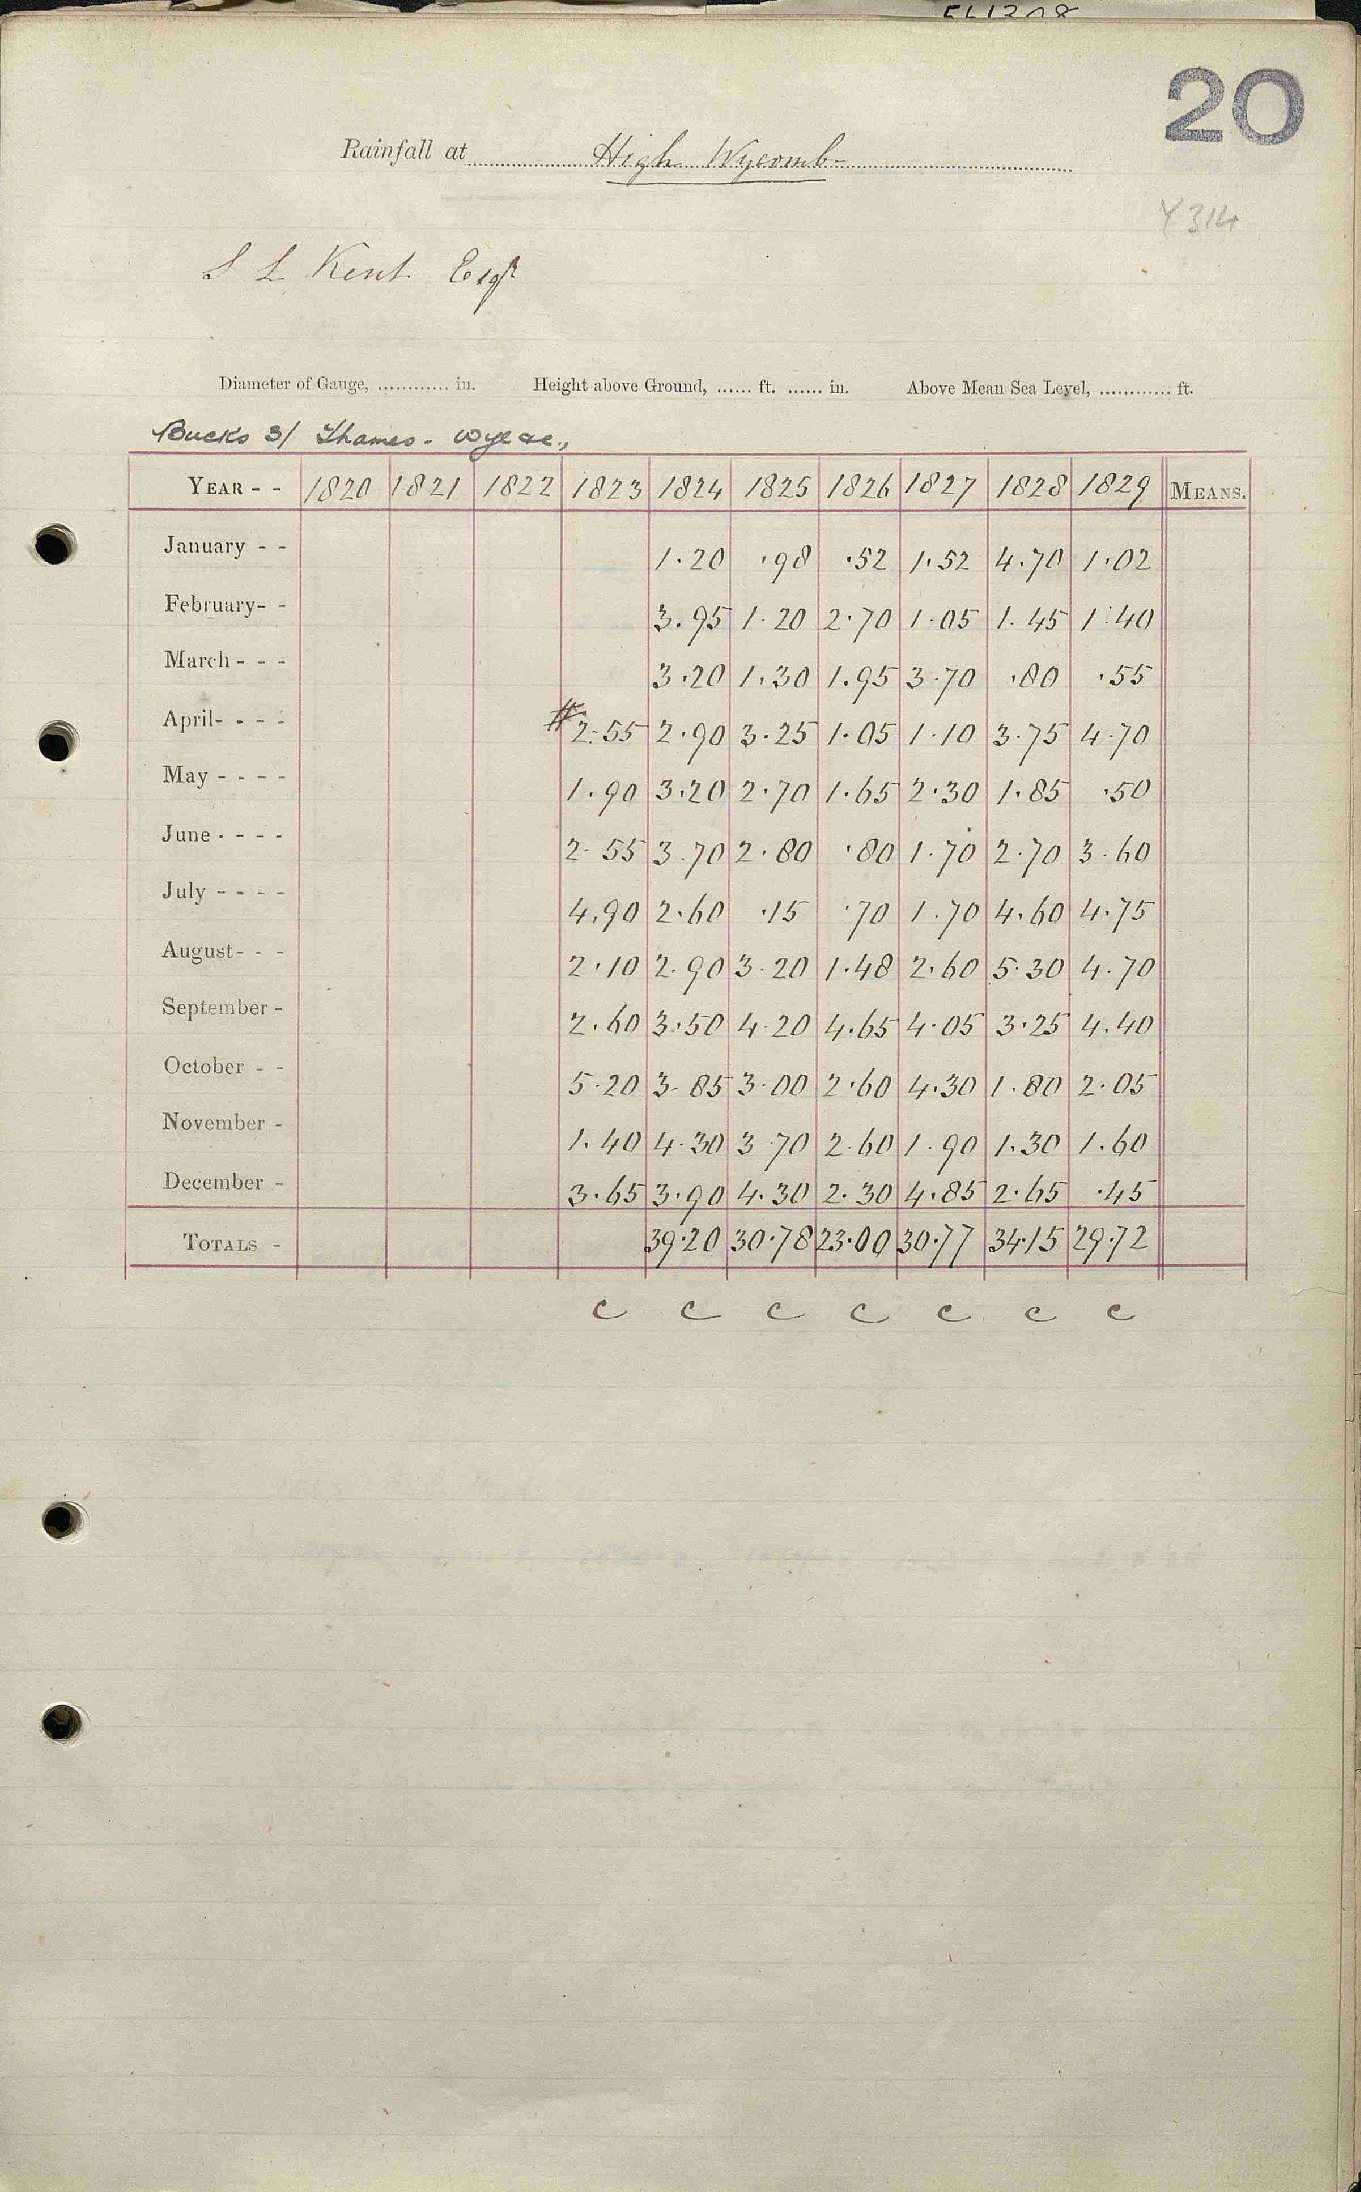 20
Rainfall at High Wycombe
Y 314
S L Kent Esqr
Diameter of Gauge, ............ in. Height above Ground, ...... ft. ...... in. Above Mean Sea Level, ............ ft.
Bucks 3/ Thames -
YEAR - - 1820 1821 1822 1823 1824 1825 1826 1827 1828 1829 MEANS.
January - - 1.20 .98 .52 1.52 4.70 1.02
February- - 3.95 1.20 2.70 1.05 1.45 1.40
March - - - 3.20 1.30 1.95 3.70 .80 .55
April- - - - # 2.55 2.90 3.25 1.05 1.10 3.75 4.70
May - - - - 1.90 3.20 2.70 1.65 2.30 1.85 .50
June - - - - 2.55 3.70 2.80 .80 1.70 2.70 3.60
July - - - - 4.90 2.60 .15 .70 1.70 4.60 4.75
August- - - 2.10 2.90 3.20 1.48 2.60 5.30 4.70
September - 2.60 3.50 4.20 4.65 4.05 3.25 4.40
October - - 5.20 3.85 3.00 2.60 4.30 1.80 2.05
November - 1.40 4.30 3.70 2.60 1.90 1.30 1.60
December - 3.65 3.90 4.30 2.30 4.85 2.65 .45
TOTALS - 39.20 30.78 23.00 30.77 34.15 29.72
c c c c c c c